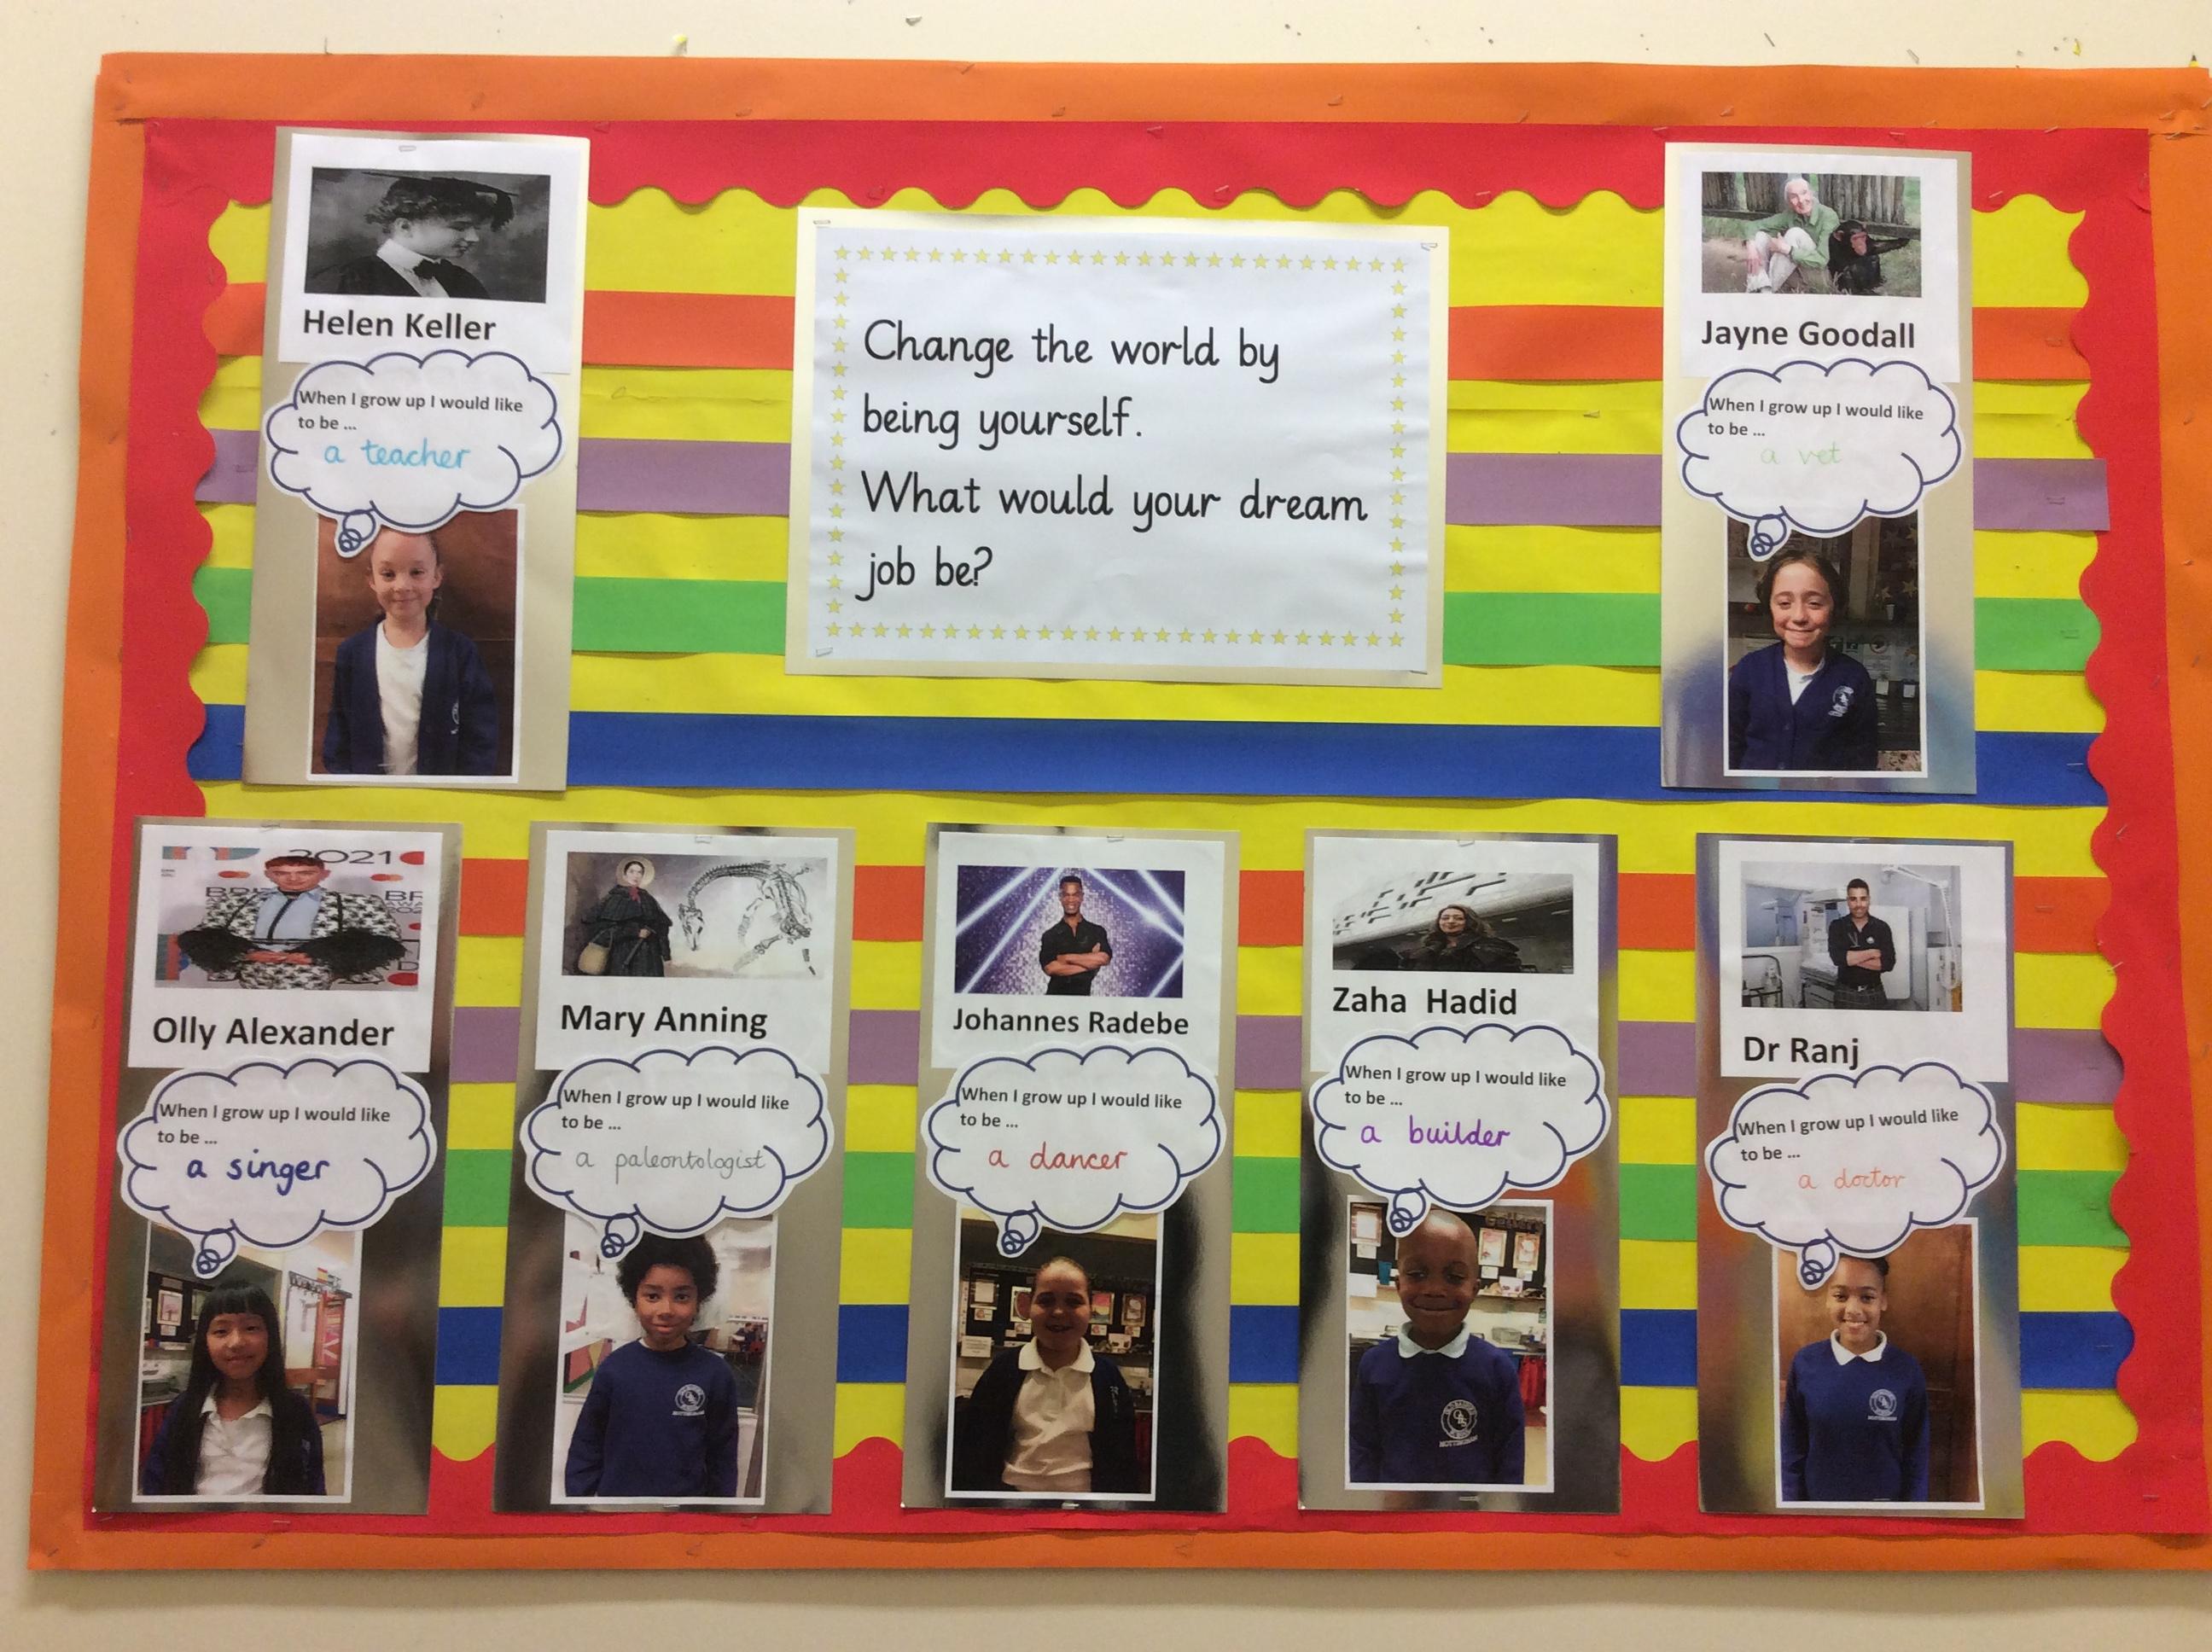 Helen Keller
When I grow up I would like
to be ...
a teacher
Change the world by
being yourself.
What would your dream
job be?
Jayne Goodall
When I grow up I would like
to be ...
a vet
2021
Olly Alexander
When I grow up I would like
to be ...
a singer
Mary Anning
When I grow up I would like
to be ...
a paleontologist
NOTTINGHAM
Johannes Radebe
When I grow up I would like
to be ...
a dancer
Zaha Hadid
When I grow up I would like
to be ...
a builder
NOTTINGHAM
Dr Ranj
When I grow up I would like
to be ...
a doctor
NOTTINGHAM